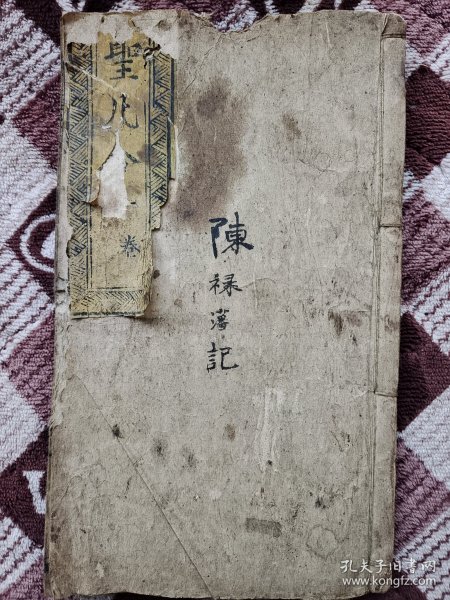 聖凡
卷
陳祿藩記
孔夫子旧书网
www.kongfz.com